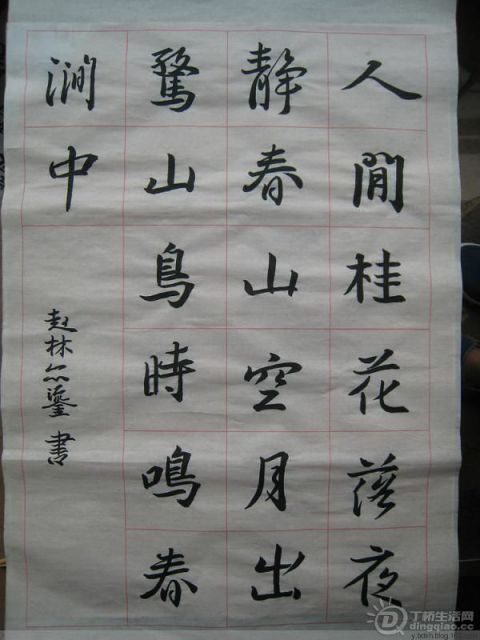 人閒桂花落夜
静春山空月出
驚山鳥時鳴春
澗中
赵林 鎏書
丁桥生活网
dingqiao.cc